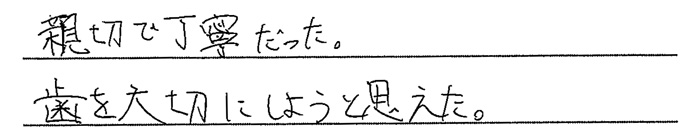 親切で丁寧だった。
歯を大切にしようと思えた。